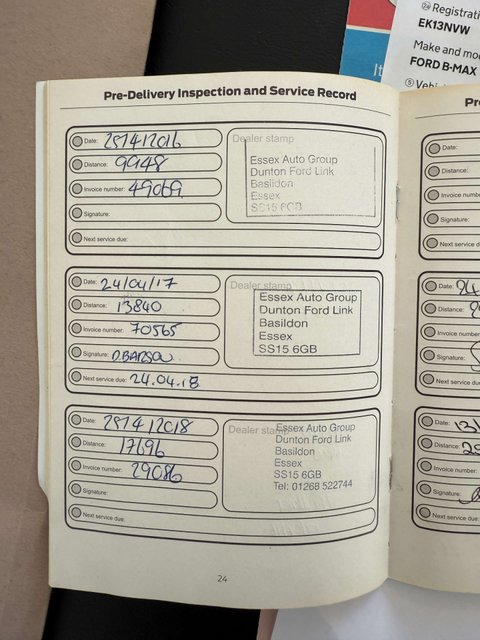 ②ⓐ Registrati
EK13NVW
Make and mod
FORD B-MAX
⑤ Vehi
It
Pre-Delivery Inspection and Service Record
Date: 25/4/2016
Distance: 9948
Invoice number: 49069
Signature:
Next service due:
Dealer stamp
Essex Auto Group
Dunton Ford Link
Basildon
Essex
SS15 6GB
Date: 24/04/17
Distance: 13840
Invoice number: 70565
Signature:
Next service due: 24.04.18
Dealer stamp
Essex Auto Group
Dunton Ford Link
Basildon
Essex
SS15 6GB
Date: 25/4/2018
Distance: 17696
Invoice number: 29086
Signature:
Next service due:
Dealer stamp
Essex Auto Group
Dunton Ford Link
Basildon
Essex
SS15 6GB
Tel: 01268 522744
24
Pr
Date:
Distance:
Invoice number:
Signature:
Next service due:
Date: 24
Distance:
Invoice number:
Signature:
Next service due:
Date: 13/
Distance: 20
Invoice number:
Signature:
Next service due: